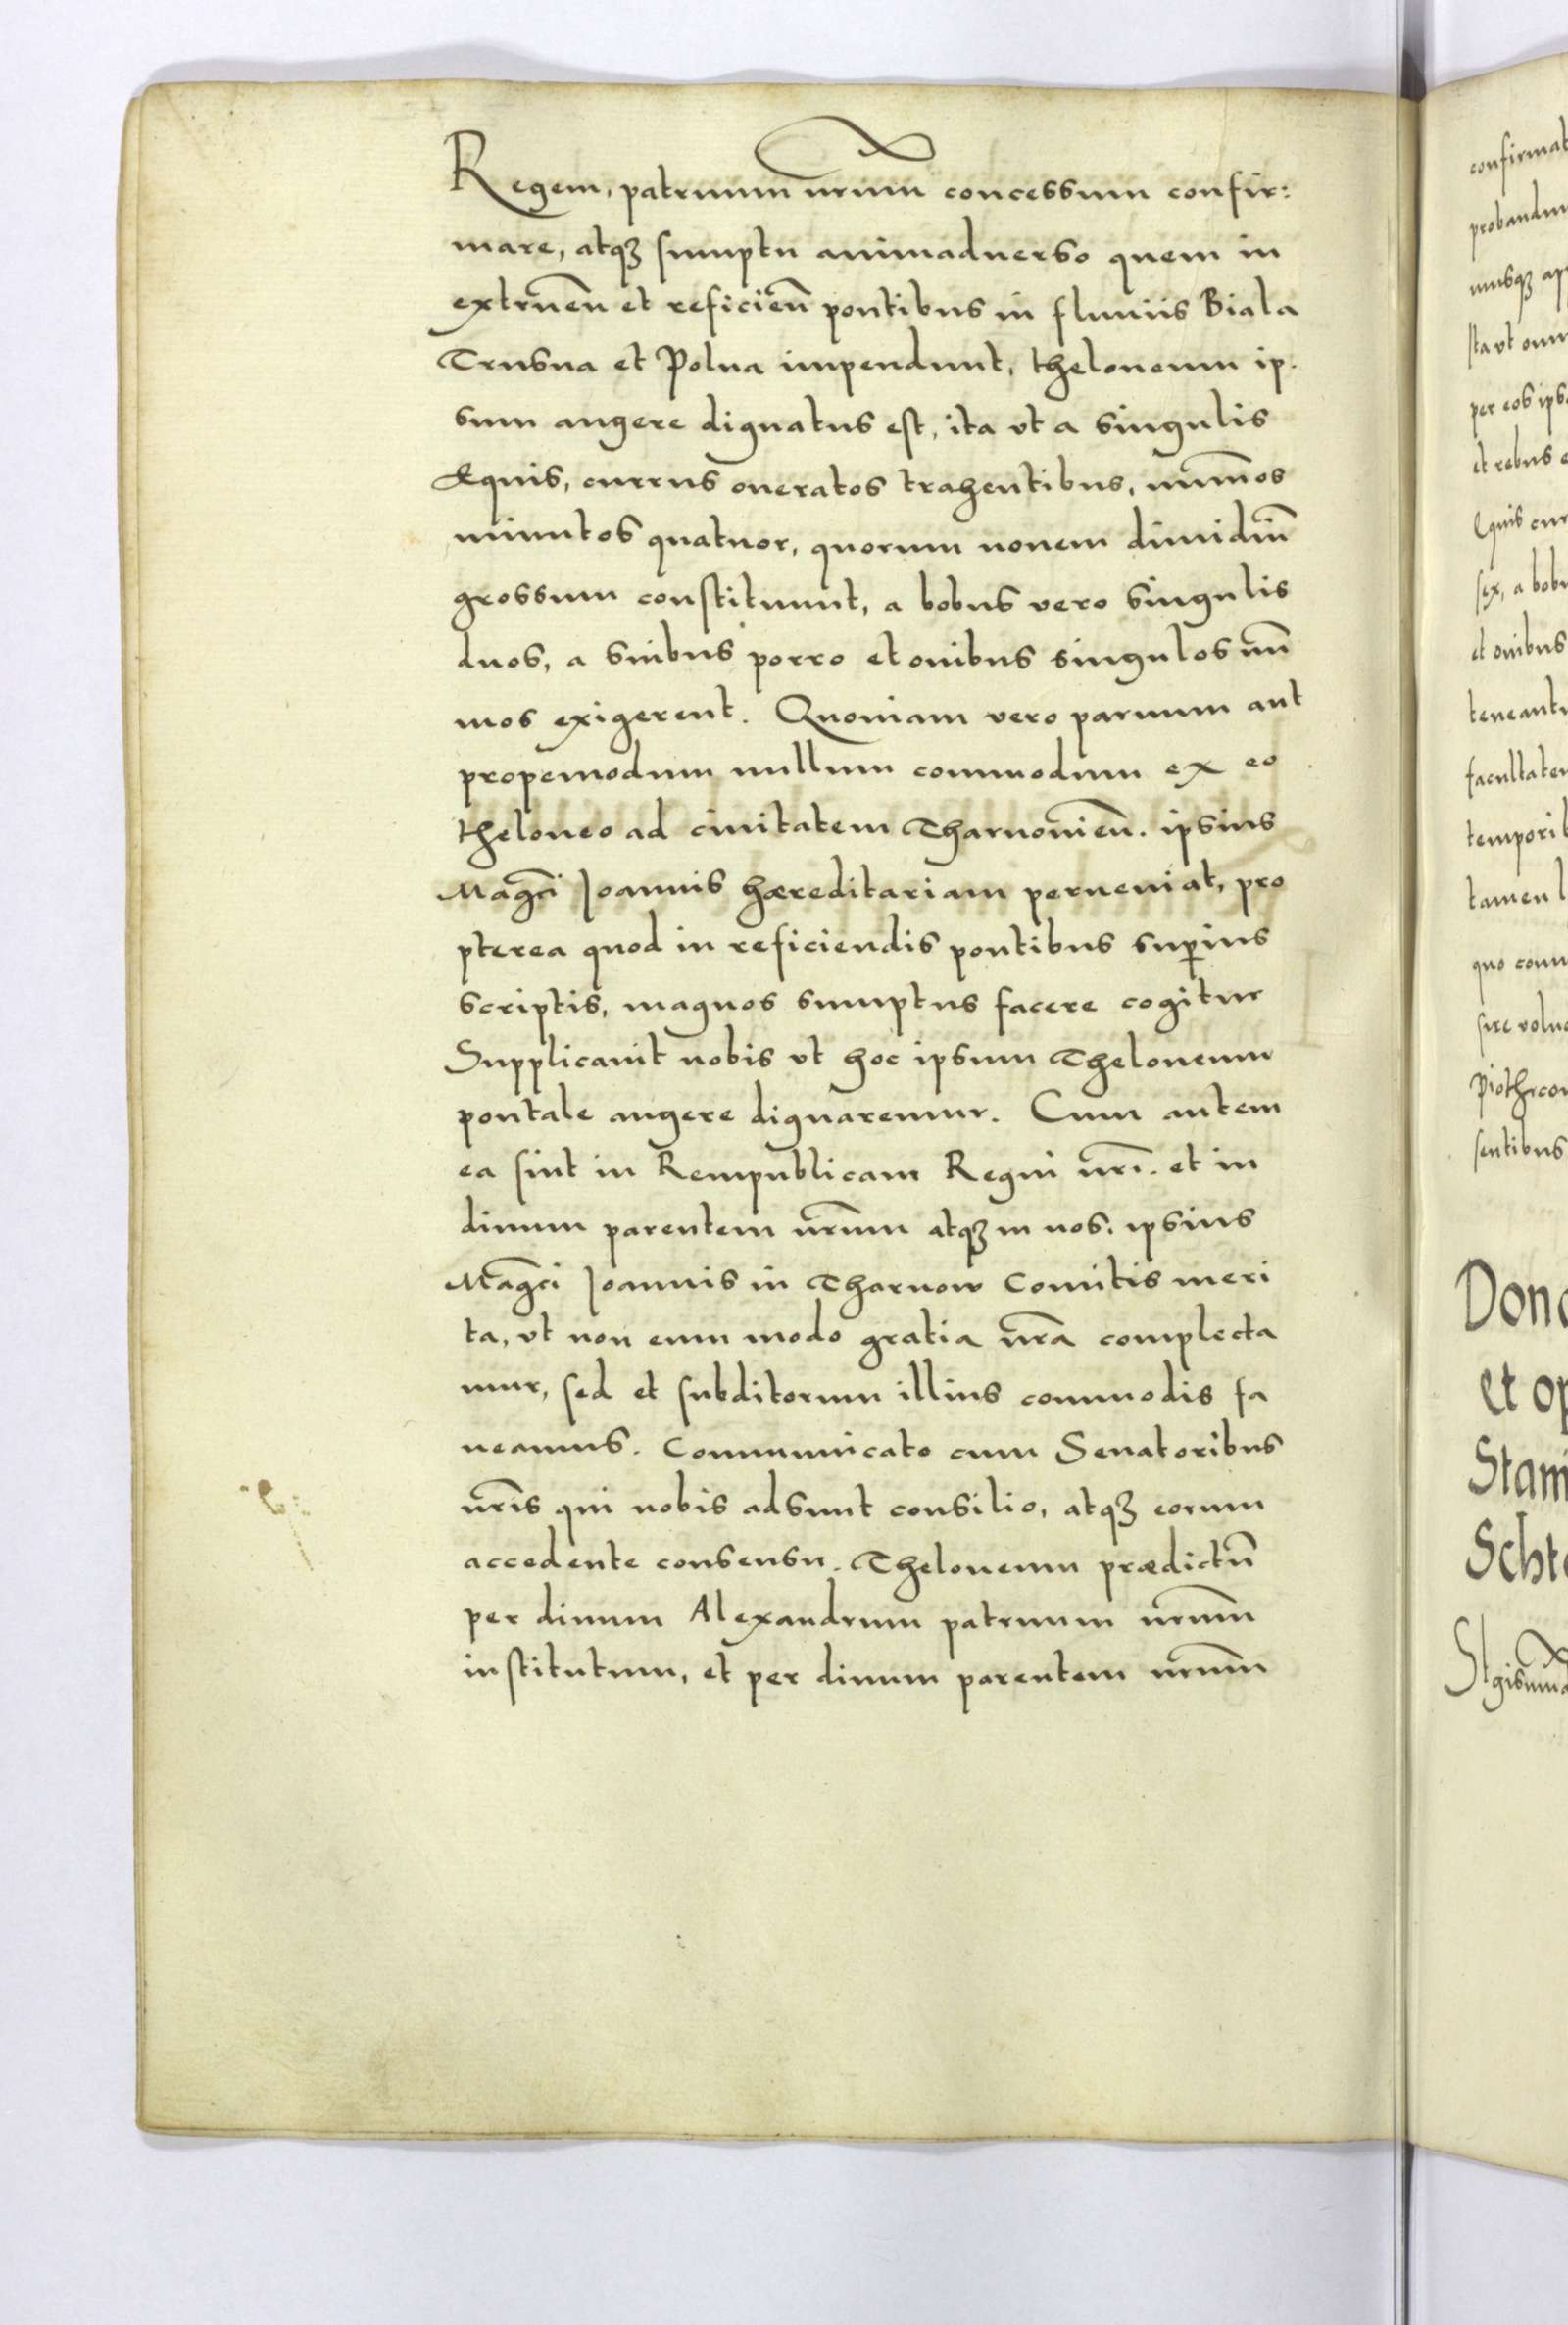 Regem, patruum nr̃um concessum confir:
mare, atqꝫ sumptu animaduerso quem in
extruẽn et reficieñ pontibus in fluuiis Biala
Trusna et Polna impendunt, theloneum ip.
sum augere dignatus est, ita vt a singulis
Equis, currus oneratos trahentibus, num̃os
minutos quatuor, quorum nouem dimidiũ
grossum constituunt, a bobus vero singulis
duos, a suibus porro et ouibus singulos nũ
mos exigerent. Quoniam vero paruum aut
propemodum nullum commodum ex eo
theloneo ad ciuitatem Tharnouieñ. ipsius
Mag̃ci Joannis hæreditariam perueniat, pro
pterea quod in reficiendis pontibus suꝑius
scriptis, magnos sumptus facere cogitur
Supplicauit nobis vt hoc ipsum Theloneum
pontale augere dignaremur. Cum autem
ea sint in Rempublicam Regni nr̃i. et in
diuum parentem nr̃um atqꝫ in nos. ipsius
Mag̃ci Joannis in Tharnow Comitis meri
ta, vt non eum modo gratia nr̃a complecta
mur, sed et subditorum illius commodis fa
ueamus. Communicato cum Senatoribus
nr̃is qui nobis adsunt consilio, atqꝫ eorum
accedente consensu. Theloneum prædictũ
per diuum Alexandrum patruum nr̃um
institutum, et per diuum parentem nr̃um
confirmat
probandu
musqꝫ ap
sta vt omn
per eos ips
et rebus
Equis cur
sex, a bobu
et ouibus
teneantu
facultatem
temporib
tamen
quo comm
sire volu
Piothrcou
sentibus
Dona
et op
Stani
Schte
Sigismu